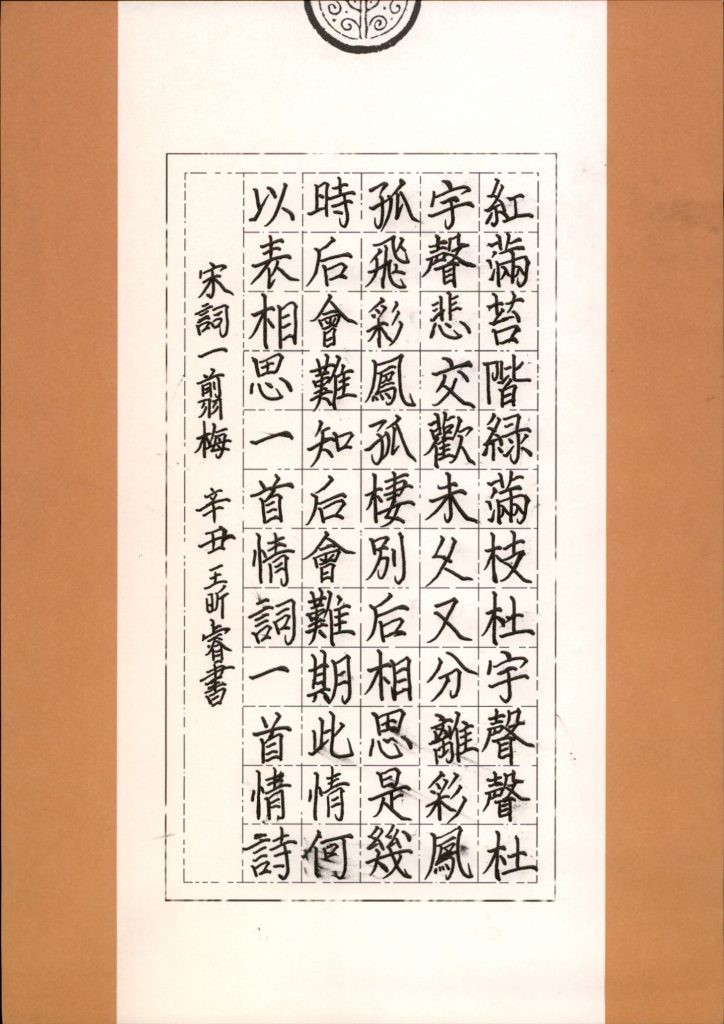 紅滿苔階緑滿枝杜宇聲聲杜
宇聲悲交歡未久又分離彩鳳
孤飛彩鳳孤棲別后相思是幾
時后會難知后會難期此情何
以表相思一首情詞一首情詩
宋詞一翦梅 辛丑王昕睿書